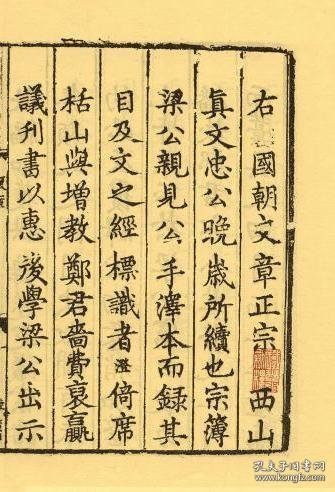 右國朝文章正宗西山
眞文忠公晚歲所續也宗簿
梁公親見公手澤本而録其
目及文之經標識者澄倚席
栝山與增教鄭君嗇費裒贏
議刊書以惠後學梁公出示
孔夫子旧书网